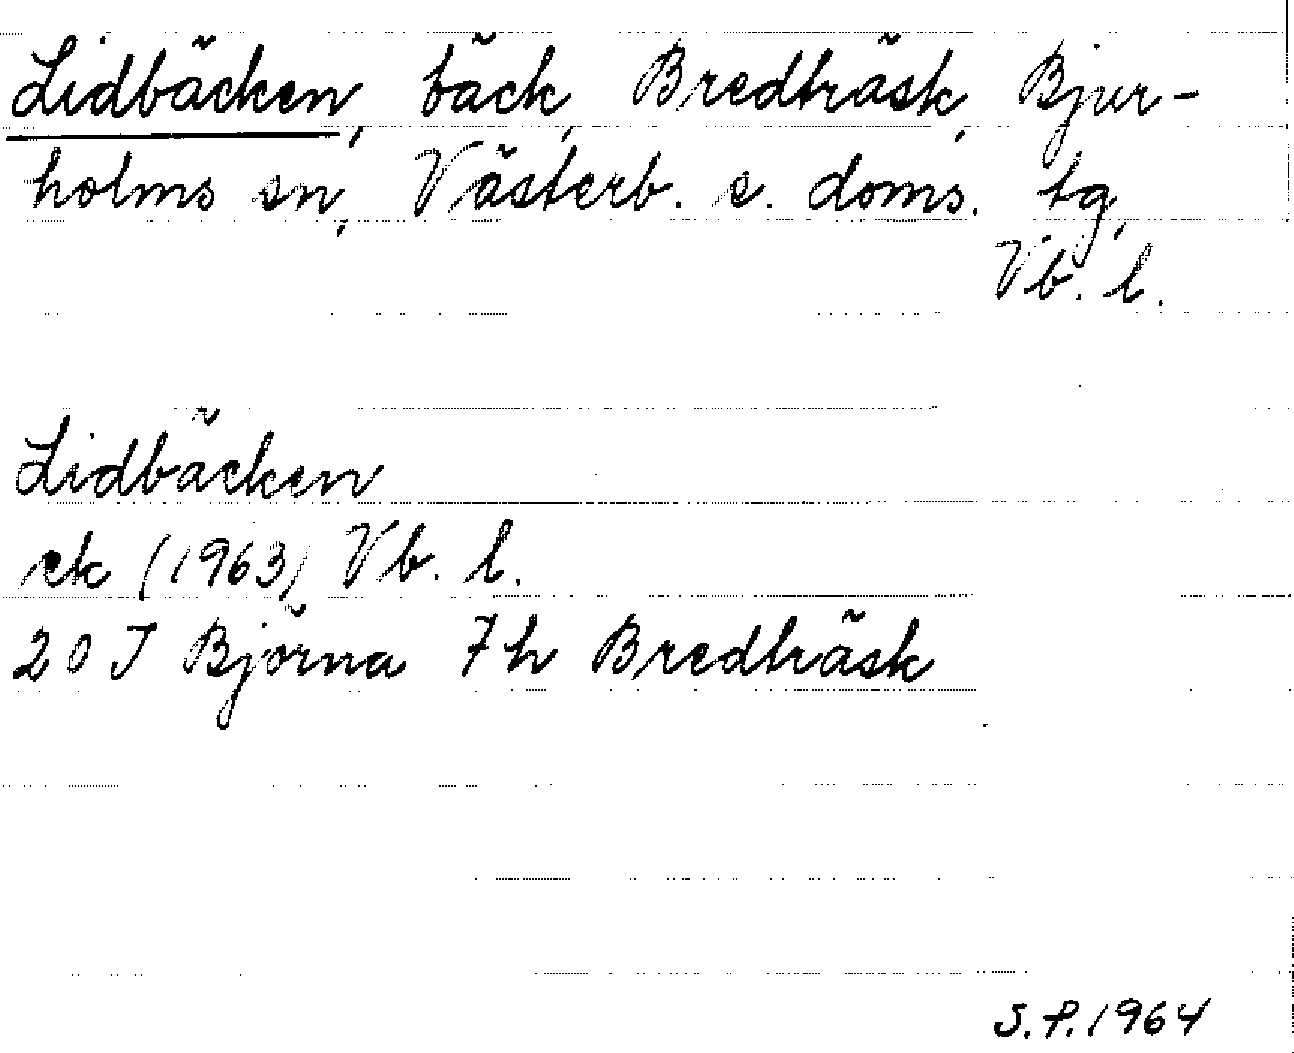 Lidbäcken, bäck, Bredträsk, Bjur-
holms sn, Västerb. s. doms. tg,
Vb. l.
Lidbäcken
ek (1963) Vb. l.
20 J Björna 7h Bredträsk
S.P. 1964